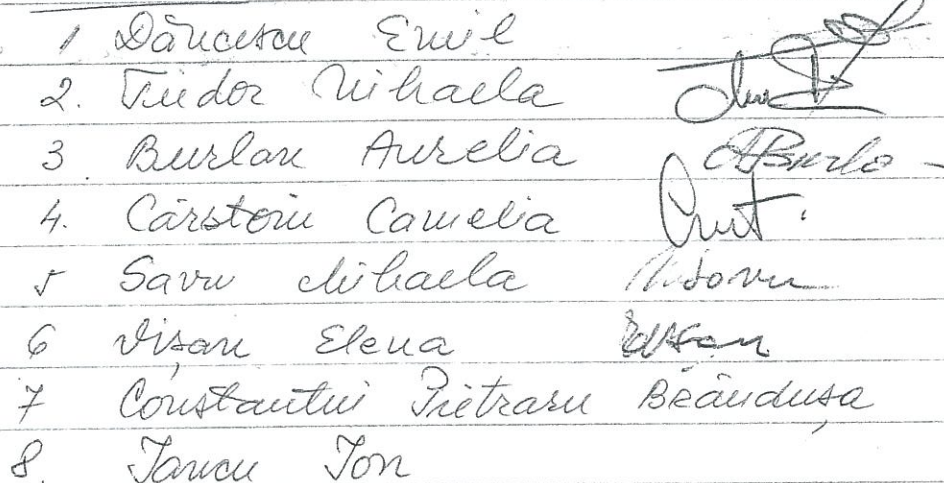 1 Dăncescu Emil
2. Tudor Mihaela
3 Burlan Aurelia ABurla
4. Cârstoiu Camelia
5 Savu Mihaela
6 Vișan Elena
7 Constantin Pietraru Brândușa
8. Iancu Ion